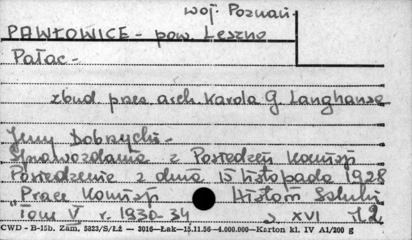 woj. Poznań
PAWŁOWICE - pow. Leszno
Pałac -
zbud. przez arch. Karola G. Langhansa
Jerzy Dobrzycki -
Sprawozdania z Posiedzeń Komisji
Posiedzenie z dnia 15 listopada 1928
"Prace Komisji Historii Sztuki
Tom V r. 1930-34 s. XVI
CWD - B-15b. Zam. 5823/S/ŁŻ — 3016—Łak—15.11.56—4.000.000—Karton kl. IV A1/200 g